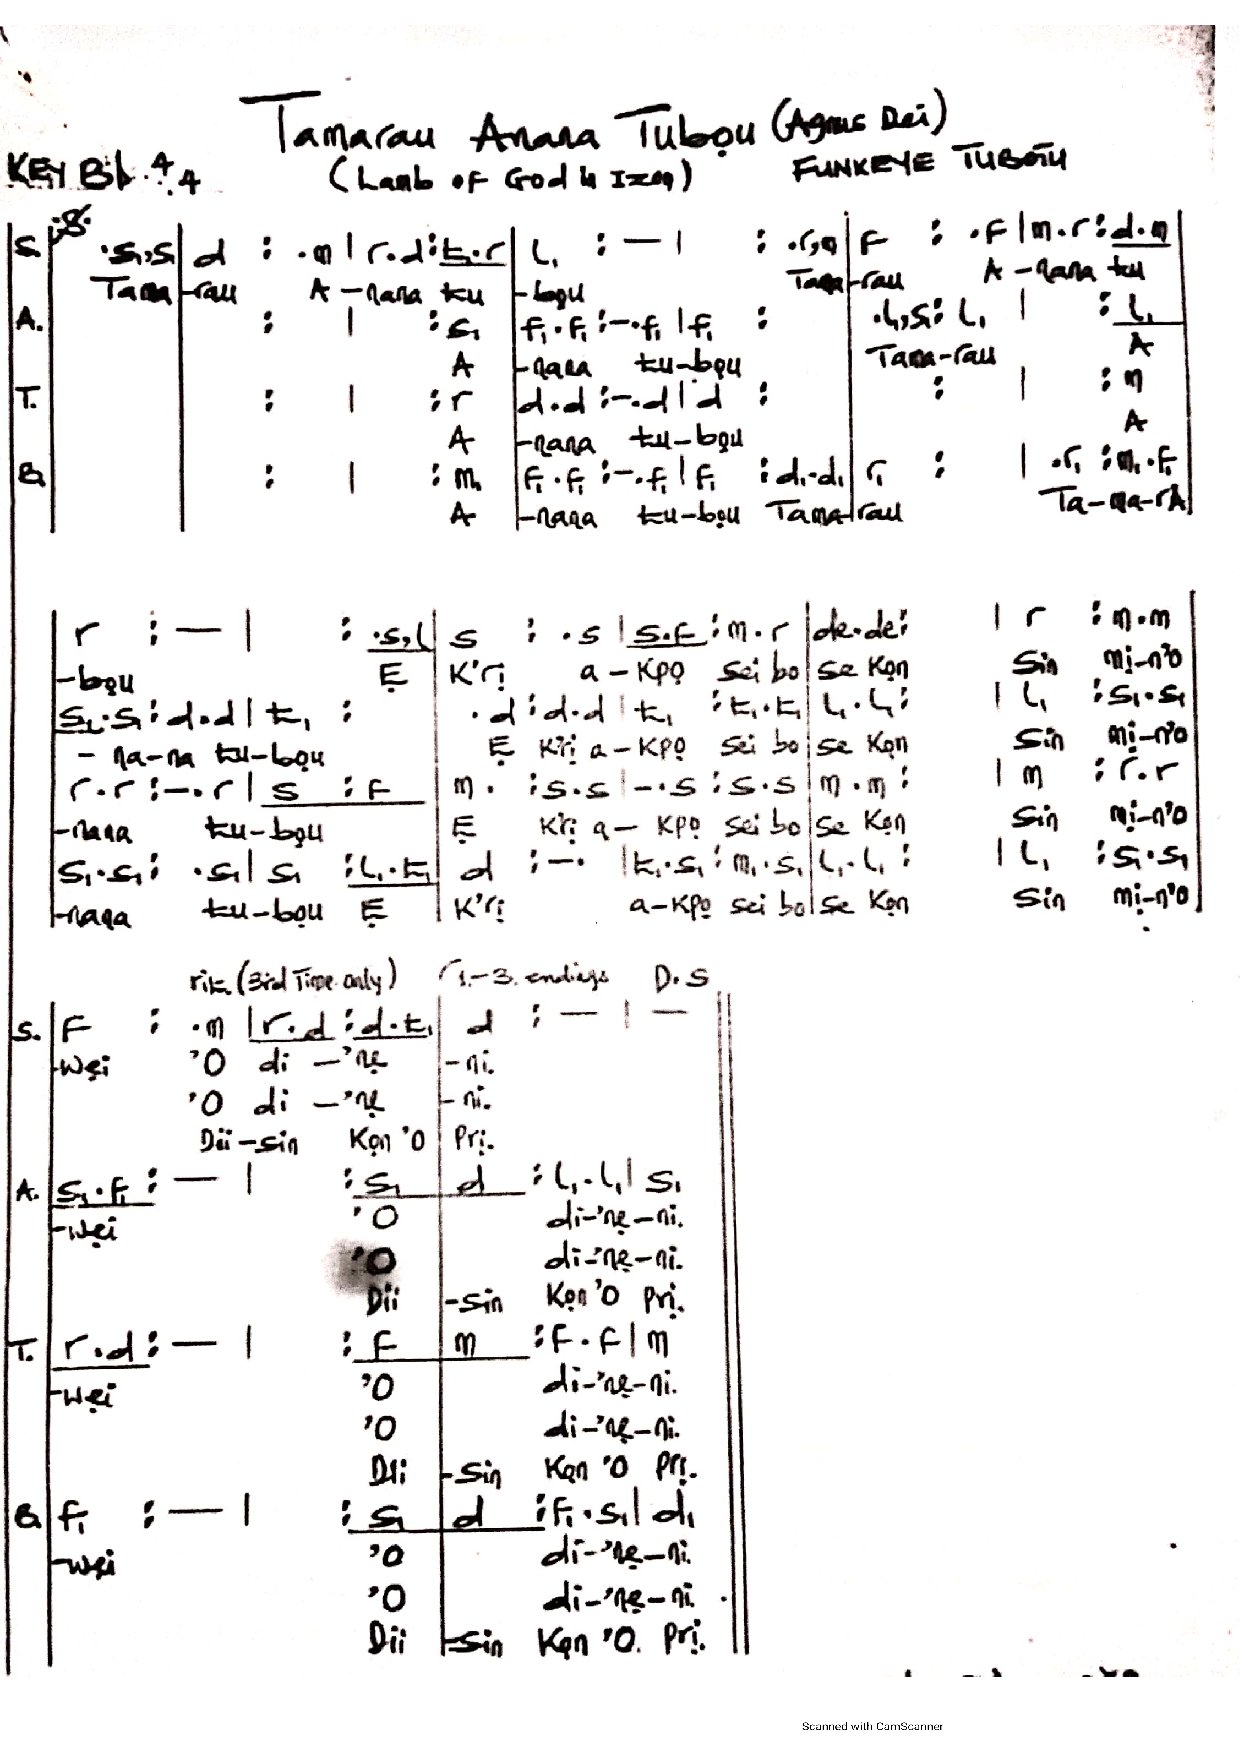 Tamarau Anana Tubọu (Agnus Dei)
KEY Bb. 4/4 (Lamb of God in Izọn) FUNKEYE TUBOTU
S. .s₁,s₁|d : .m|r.d:t₁.r|l₁ :—| : .r,m|f : .f|m.r:d.m
Tama-rau A-nana tu-bọu Tama-rau A-nana tu
A. : | :s₁|f₁.f₁:-.f₁|f₁ : .l₁,s₁:l₁ | :l₁
A -nana tu-bọu Tama-rau A
T. : | :r|d.d:-.d|d : : | :m
A -nana tu-bọu A
B. : | :m₁|f₁.f₁:-.f₁|f₁ :d₁.d₁|r₁ : | .r₁:m₁.f₁
A -nana tu-bọu Tama-rau Ta-ma-rA
r :—| :.s,l|s : .s|s.f:m.r|de.de: | r :m.m
-bọu Ẹ K'rị a-kpọ sei bo se kọn sin mị-n'o
s₁.s₁:d.d|t₁ : .d:d.d|t₁ :t₁.t₁|l₁.l₁: | l₁ :s₁.s₁
- na-na tu-bọu Ẹ K'rị a-kpọ sei bo se kọn sin mị-n'o
r.r:-.r|s :f |m. :s.s|-.s:s.s|m.m: | m :r.r
-nana tu-bọu Ẹ K'rị a- kpọ sei bo se kọn sin mị-n'o
s₁.s₁: .s₁|s₁ :l₁.t₁|d :-. |t₁.s₁:m₁.s₁|l₁.l₁: | l₁ :s₁.s₁
-nana tu-bọu Ẹ K'rị a-kpọ sei bo se kọn sin mị-n'o
rit. (3rd Time only) 1.-3. endings D.S
S. f : .m|r.d:d.t₁|d :—|—
-wẹi 'O di -'nẹ -ni.
'O di -'nẹ -ni.
Dii-sin Kọn 'O Prị.
A. s₁.f₁:—| :s₁|d :l₁.l₁|s₁
-wẹi 'O di-'nẹ-ni.
'O di-'nẹ-ni.
Dii -sin Kọn 'O Prị.
T. r.d:—| :f|m :f.f|m
-wẹi 'O di-'nẹ-ni.
'O di-'nẹ-ni.
Dii -sin Kọn 'O Prị.
B. f₁ :—| :s₁|d :f₁.s₁|d₁
-wẹi 'O di-'nẹ-ni.
'O di-'nẹ-ni.
Dii -sin Kọn 'O. Prị.
Scanned with CamScanner